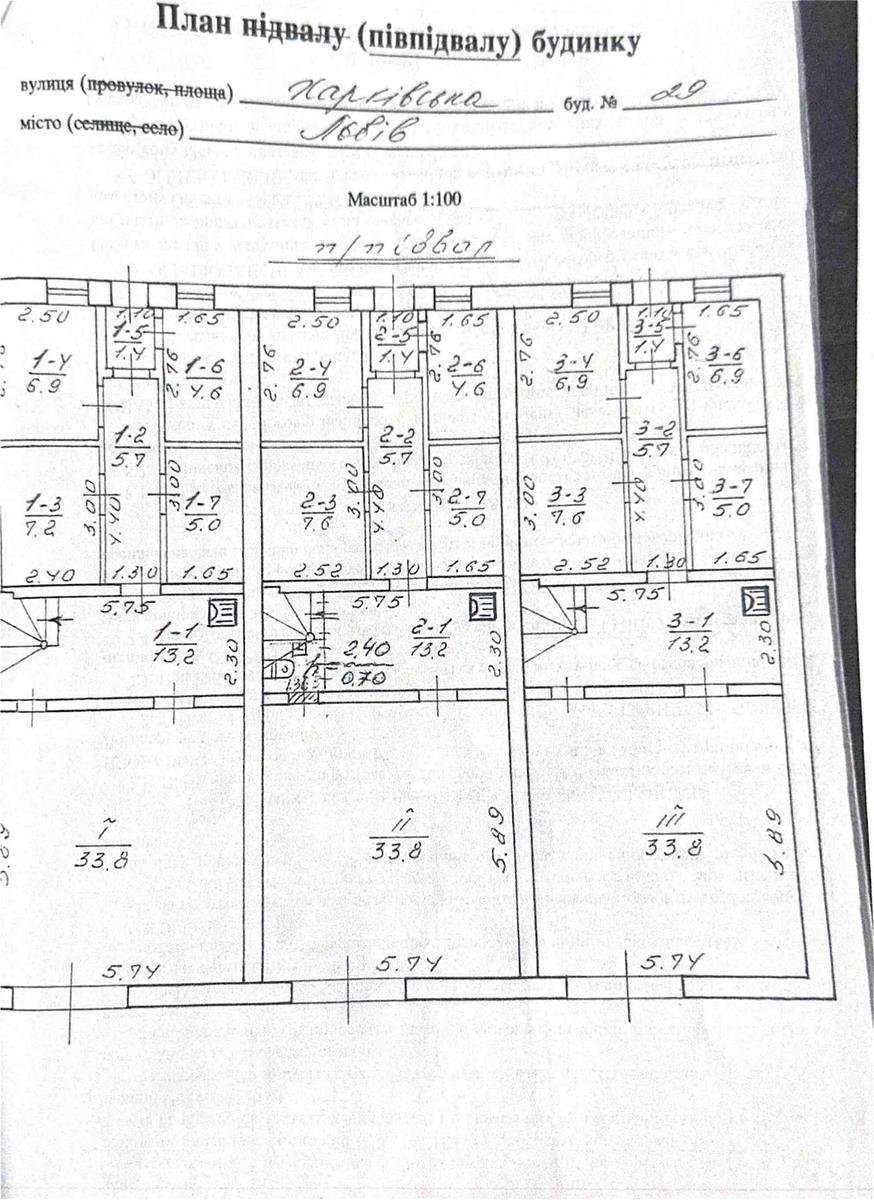 План підвалу (півпідвалу) будинку
вулиця (провулок, площа) Харківська буд. № 29
місто (селище, село) Львів
Масштаб 1:100
п/підвал
2.50 1.10 1.65 2.50 1.10 1.65 2.50 1.10 1.65
1-5 2-5 3-5
1.4 1.4 1.4
1-4 2.76 1-6 2.76 2-4 2.76 2-6 2.76 3-4 2.76 3-6
6.9 4.6 6.9 4.6 6.9 6.9
1-2 2-2 3-2
5.7 5.7 5.7
1-3 3.00 4.40 3.00 1-7 2-3 3.00 4.40 3.00 2-7 3.00 3-3 4.40 3.00 3-7
7.2 5.0 7.6 5.0 7.6 5.0
2.40 1.30 1.65 2.52 1.30 1.65 2.52 1.30 1.65
5.75 5.75 5.75
1-1 2.30 2.40 2-1 2.30 3-1 2.30
13.2 0.70 13.2 13.2
I II III
33.8 33.8 5.89 33.8 5.89
5.89
5.74 5.74 5.74